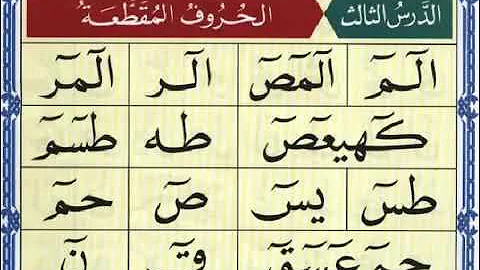 الدَّرسُ الثالث الحُرُوفُ المُقَطَّعَةُ
الٓمٓ الٓمٓصٓ الٓرٰ الٓمٓرٰ
كٓهيعٓصٓ طٰهٰ طٰسٓمٓ
طٰسٓ يٰسٓ صٓ حٰمٓ
حٰمٓ عٓسٓقٓ قٓ نٓ